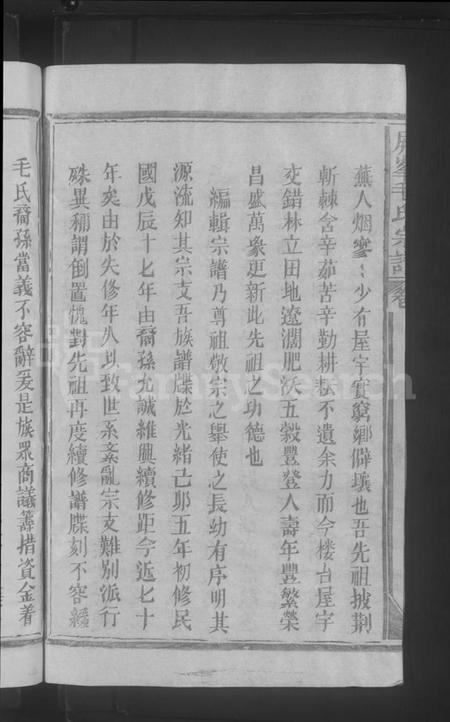 屏峯毛氏宗譜 卷
蕪人烟寥〻少有屋宇實窮鄉僻壤也吾先祖披荆
斬棘含辛茹苦辛勤耕耘不遺余力而今楼台屋宇
交錯林立田地遼濶肥沃五穀豐登人壽年豐繁榮
昌盛萬象更新此先祖之功德也
編輯宗譜乃尊祖敬宗之舉使之長幼有序明其
源流知其宗支吾族譜牒於光緒己卯五年初修民
國戊辰十七年由裔孫允誠維興續修距今近七十
年矣由於失修年久以致世系紊亂宗支難别派行
殊異稱謂倒置愧對先祖再度續修譜牒刻不容緩
毛氏裔孫當義不容辭爰是族眾商議籌措資金着
FamilySearch